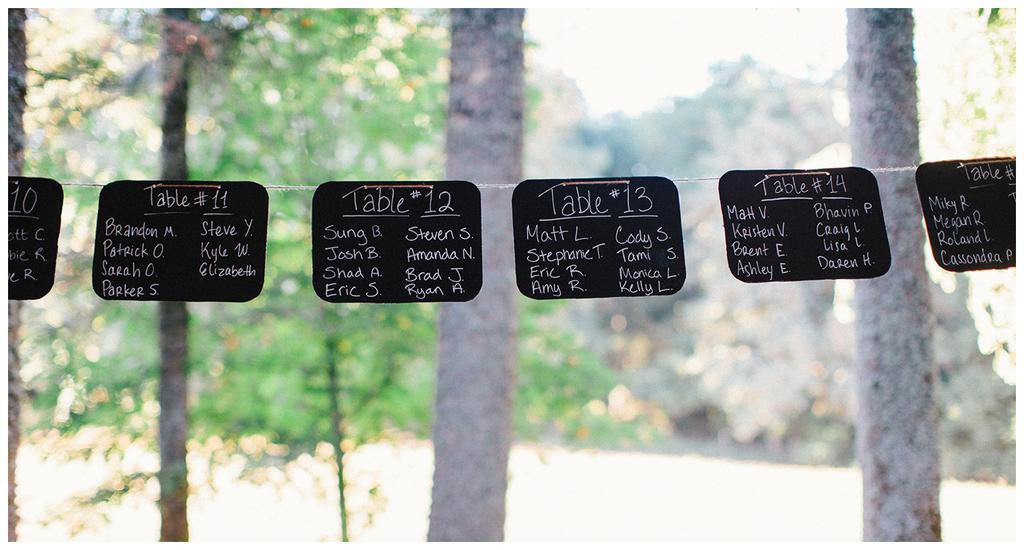 10
C.
R.
R.
Table #11
Brandon M.
Patrick O.
Sarah O.
Parker S.
Steve Y.
Kyle W.
Elizabeth
Table #12
Sung B.
Josh B.
Shad A.
Eric S.
Steven S.
Amanda N.
Brad J.
Ryan A.
Table #13
Matt L.
Stephanie T.
Eric R.
Amy R.
Cody S.
Tami S.
Monica L.
Kelly L.
Table #14
Matt V.
Kristen V.
Brent E.
Ashley E.
Bhavin P.
Craig L.
Lisa L.
Daren H.
Table #
Miky R
Megan R
Roland L
Cassondra P